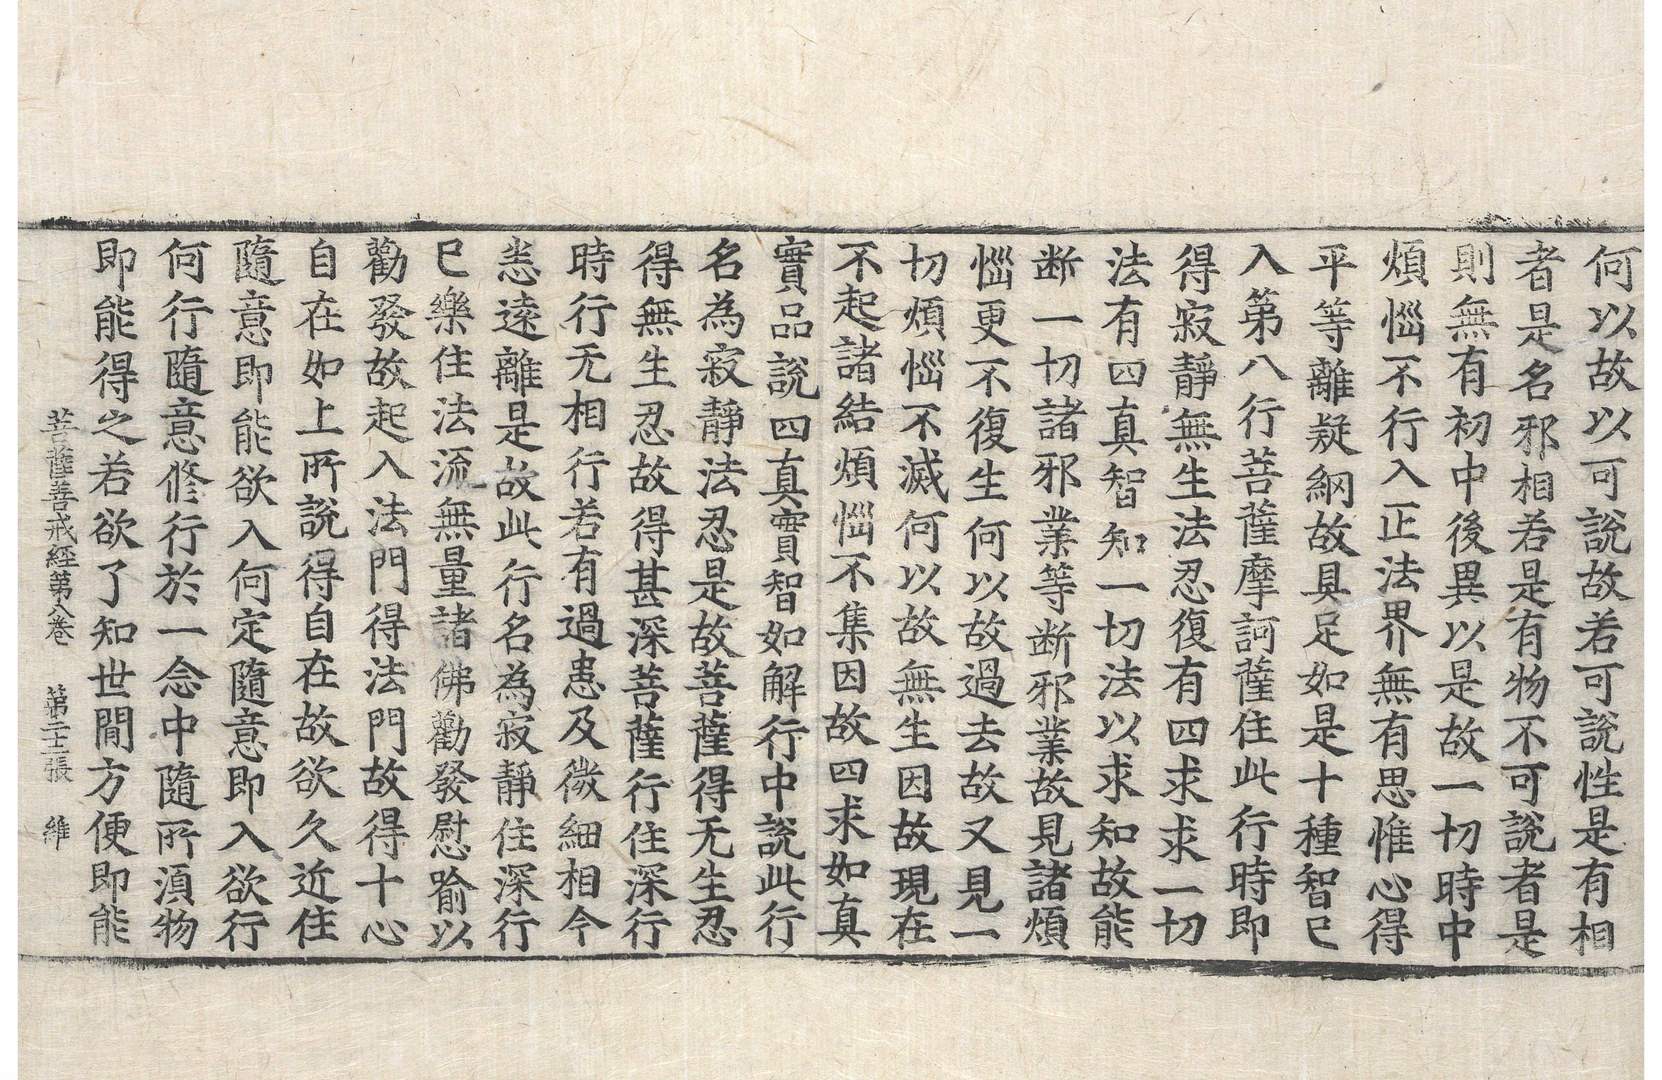 何以故以可說故若可說性是有相
者是名邪相若是有物不可說者是
則無有初中後異以是故一切時中
煩惱不行入正法界無有思惟心得
平等離疑網故具足如是十種智已
入第八行菩薩摩訶薩住此行時即
得寂靜無生法忍復有四求求一切
法有四真智知一切法以求知故能
断一切諸邪業等断邪業故見諸煩
惱更不復生何以故過去故又見一
切煩惱不滅何以故無生因故現在
不起諸結煩惱不集因故四求如真
實品說四真實智如解行中說此行
名為寂靜法忍是故菩薩得无生忍
得無生忍故得甚深菩薩行住深行
時行无相行若有過患及微細相今
悉遠離是故此行名為寂靜住深行
已樂住法流無量諸佛勸發慰喻以
勸發故起入法門得法門故得十心
自在如上所說得自在故欲久近住
隨意即能欲入何定隨意即入欲行
何行隨意修行於一念中隨所湏物
即能得之若欲了知世間方便即能
菩薩善戒經第八卷 第二十二張 維